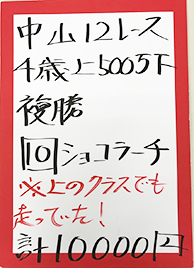 中山12レース
4歳上500万下
複勝
10ショコラーチ
※上のクラスでも
走っていた!
計10000円